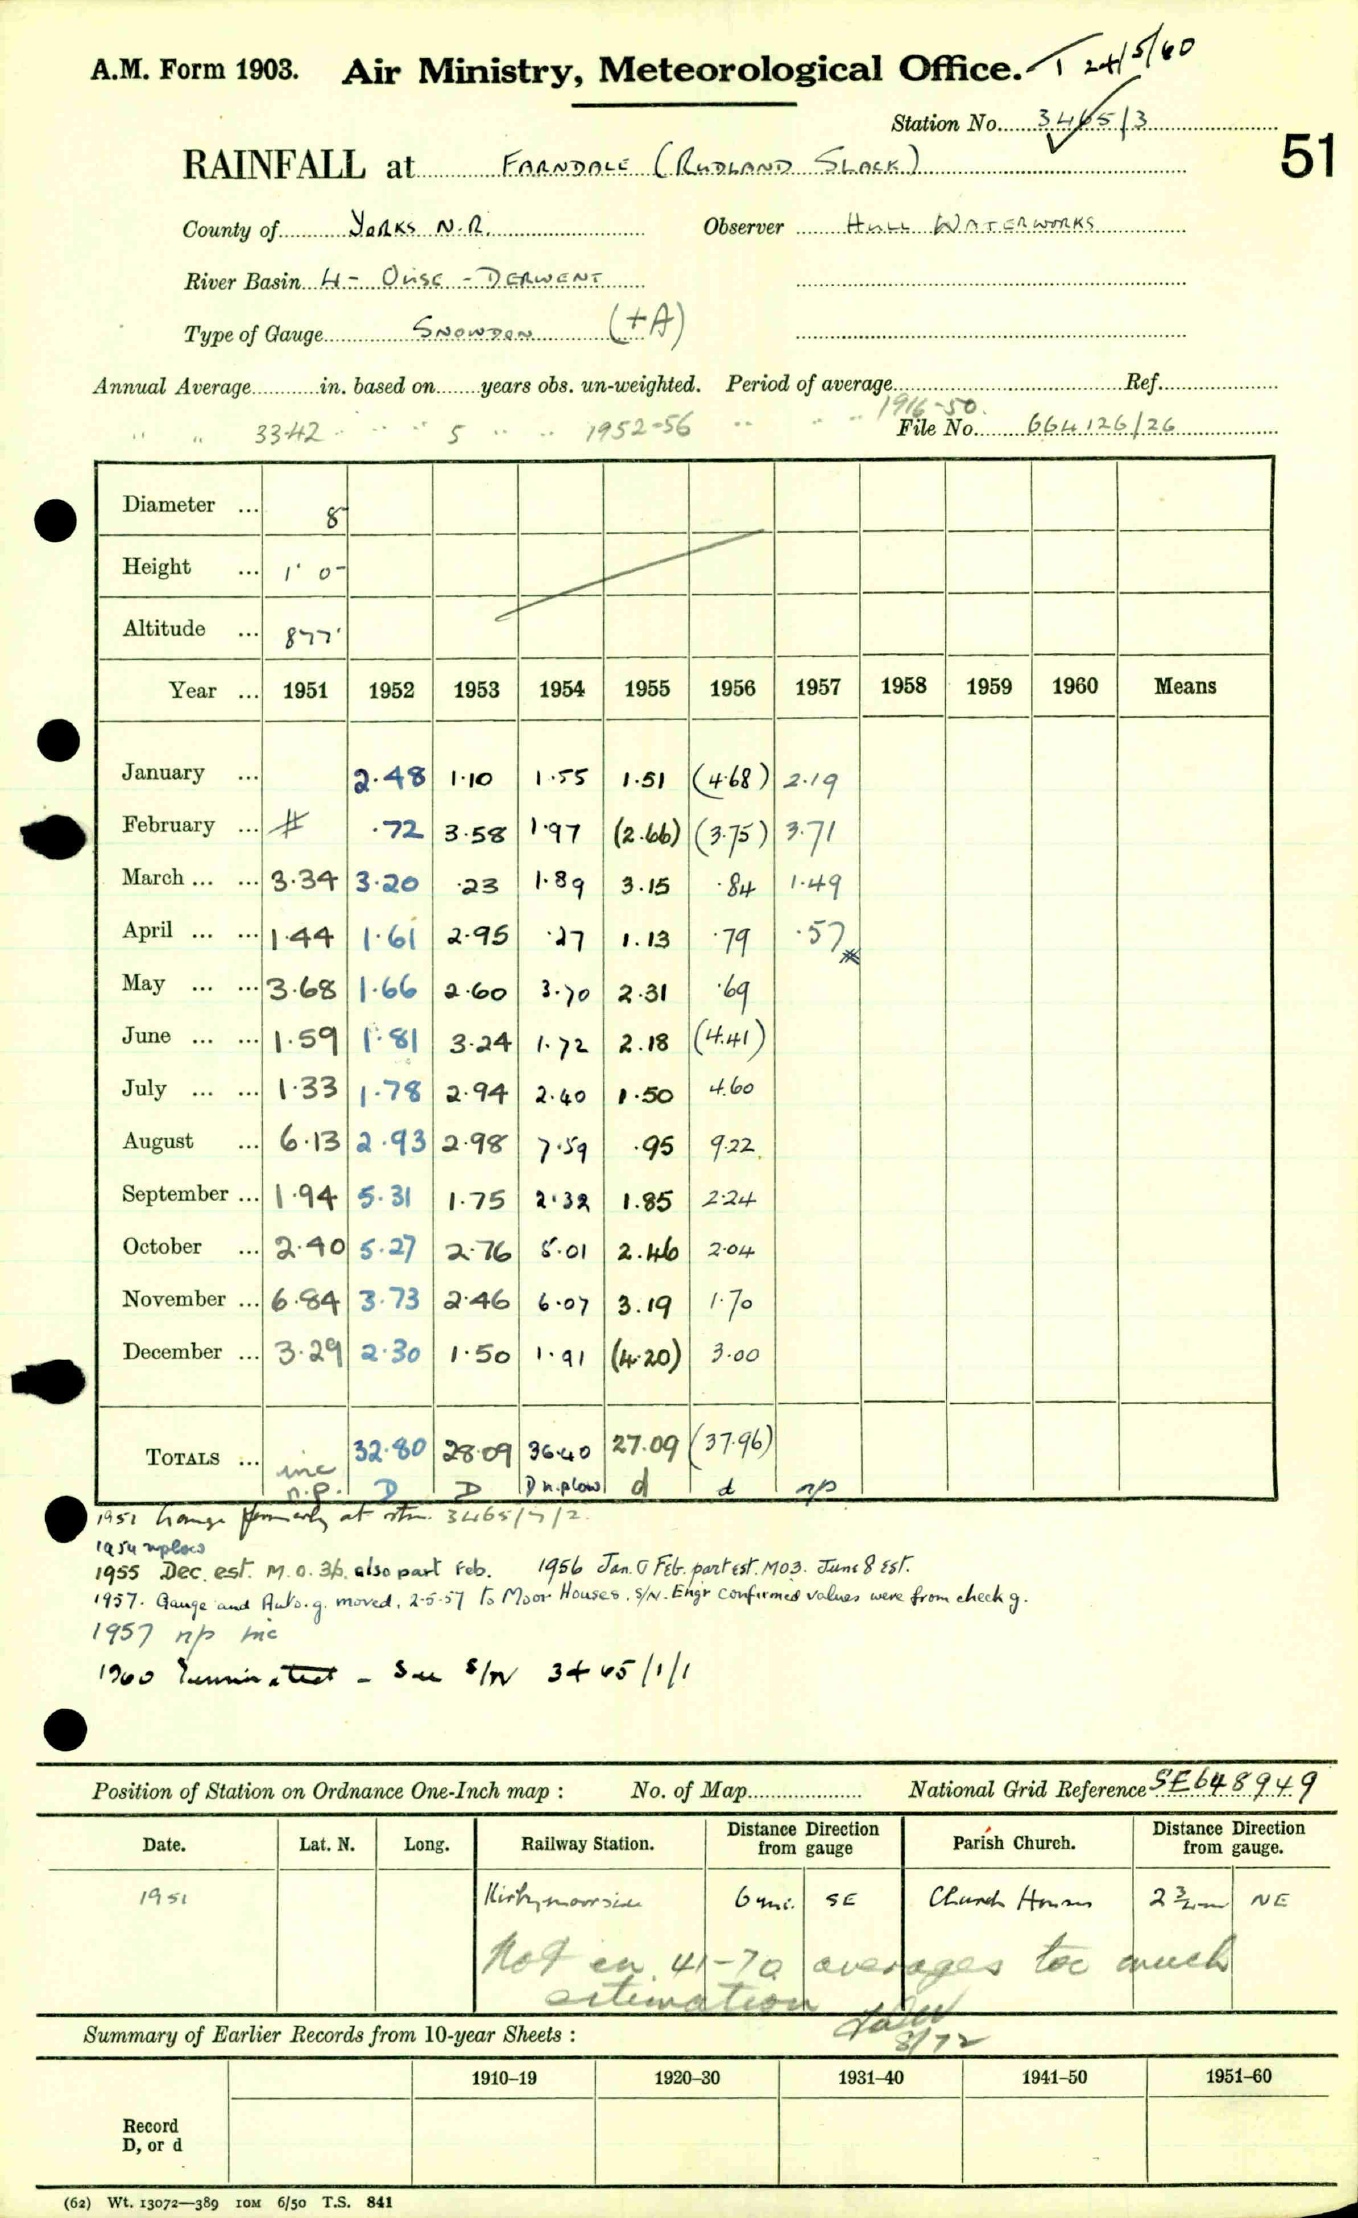 A.M. Form 1903. Air Ministry, Meteorological Office. T 24/5/60
Station No. 3465/3
51
RAINFALL at FARNDALE (RUDLAND SLACK)
County of YORKS N.R. Observer HULL WATERWORKS
River Basin 4 - OUSE - DERWENT
Type of Gauge SNOWDON (+A)
Annual Average in. based on years obs. un-weighted. Period of average Ref.
" " 33.42 " " " 5 " " 1952-56 " " " 1916-50.
File No. 664126/26
Diameter ... 8
Height ... 1' 0"
Altitude ... 877'
Year ... 1951 1952 1953 1954 1955 1956 1957 1958 1959 1960 Means
January ... 2.48 1.10 1.55 1.51 (4.68) 2.19
February ... # .72 3.58 1.97 (2.66) (3.75) 3.71
March ... ... 3.34 3.20 .23 1.89 3.15 .84 1.49
April ... ... 1.44 1.61 2.95 .27 1.13 .79 .57
May ... ... 3.68 1.66 2.60 3.70 2.31 .69
June ... ... 1.59 1.81 3.24 1.72 2.18 (4.41)
July ... ... 1.33 1.78 2.94 2.40 1.50 4.60
August ... 6.13 2.93 2.98 7.59 .95 9.22
September ... 1.94 5.31 1.75 2.32 1.85 2.24
October ... 2.40 5.27 2.76 5.01 2.46 2.04
November ... 6.84 3.73 2.46 6.07 3.19 1.70
December ... 3.29 2.30 1.50 1.91 (4.20) 3.00
TOTALS ... inc 32.80 28.09 36.40 27.09 (37.96)
n.p. D D D n.plow d d np
1951 Gauge formerly at stn. 3465/7/2.
1954 nplow
1955 Dec. est. M.O.3b. also part Feb. 1956 Jan. & Feb. part est. MO3. June 8 est.
1957. Gauge and Auto. g. moved, 2-5-57 to Moor Houses. S/N. Engr confirmed values were from check g.
1957 np inc
1960 Terminated - See S/N 3465/1/1
Position of Station on Ordnance One-Inch map : No. of Map National Grid Reference SE648949
Date. Lat. N. Long. Railway Station. Distance from Direction gauge Parish Church. Distance from Direction gauge.
1951 Kirbymoorside 6 mi. SE Church Houses 2 3/4 NE
Not in 41-70 averages too much
estimation
8/72
Summary of Earlier Records from 10-year Sheets :
1910–19 1920–30 1931–40 1941–50 1951–60
Record
D, or d
(62) Wt. 13072—389 10M 6/50 T.S. 841